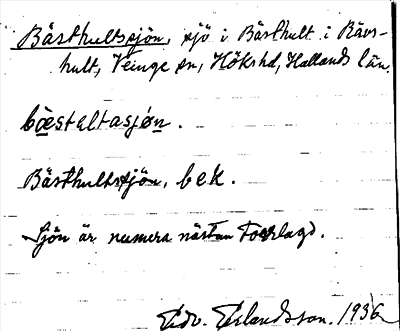 Bästhultssjön, sjö i Bästhult i Rävs-
hult, Veinge sn, Hökshd, Hallands län.
bo̲estaltasjo̲n̲.
Bästhultssjön, bek.
Sjön är numera nästan torrlagd.
Edv. Erlandsson. 1936